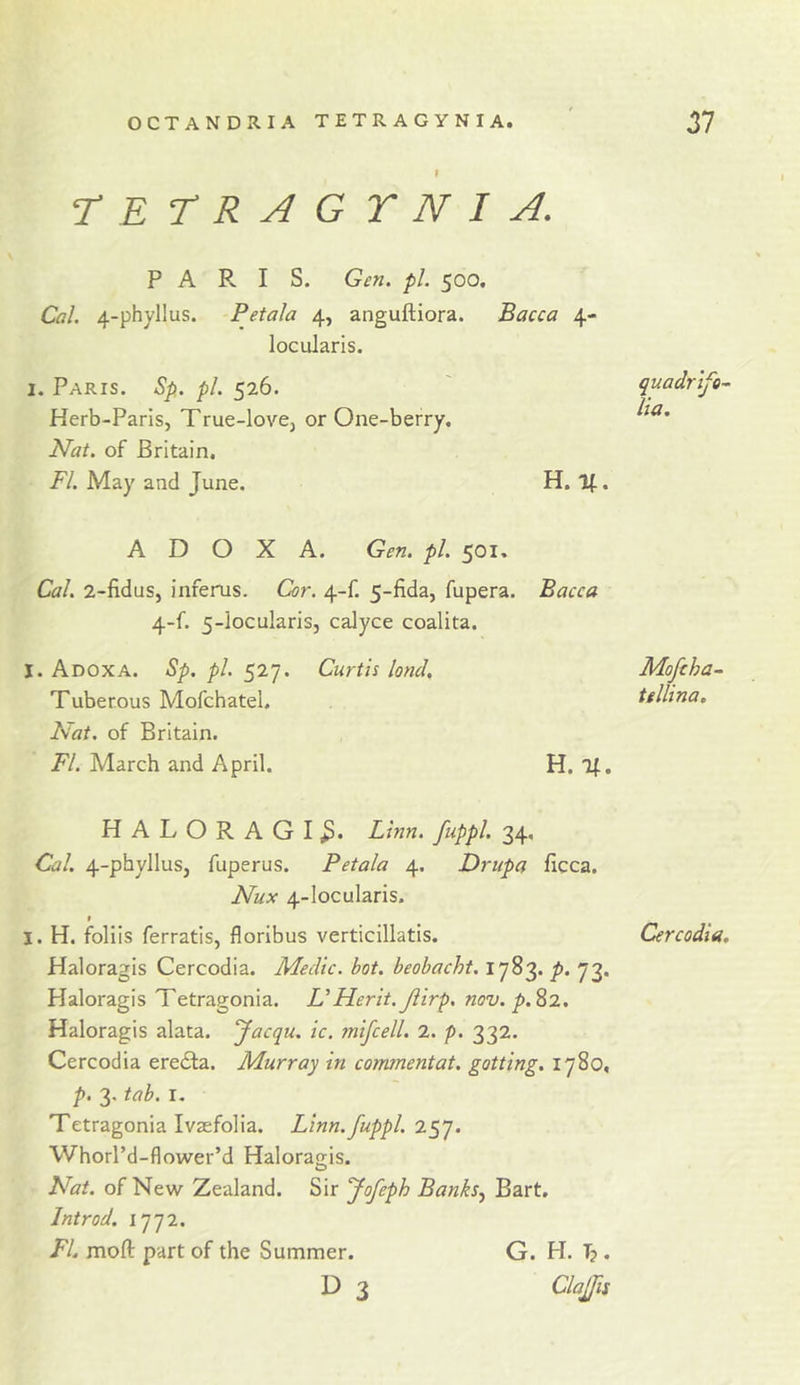 OCTANDRIA TETRAGYNIA. 37
TETRAGYNIA.
PARIS. Gen. pl. 500.
Cal. 4-phyllus. Petala 4, anguſtiora. Bacca 4-
locularis.
1. PARIS. Sp. pl. 526. quadrifo-
Herb-Paris, True-love, or One-berry. lia.
Nat. of Britain.
Fl. May and June. H. ♃.
ADOXA. Gen. pl. 501.
Cal. 2-fidus, inferus. Cor. 4-ſ. 5-fida, ſupera. Bacca
4-ſ. 5-locularis, calyce coalita.
1. ADOXA. Sp. pl. 527. Curtis lond. Moſcha-
Tuberous Moſchatel. tellina.
Nat. of Britain.
Fl. March and April. H. ♃.
HALORAGIS. Linn. ſuppl. 34.
Cal. 4-phyllus, ſuperus. Petala 4. Drupa ſicca.
Nux 4-locularis.
1. H. foliis ſerratis, floribus verticillatis. Cercodia.
Haloragis Cercodia. Medic. bot. beobacht. 1783. p. 73.
Haloragis Tetragonia. L'Herit. ſtirp. nov. p. 82.
Haloragis alata. Jacqu. ic. miſcell. 2. p. 332.
Cercodia erecta. Murray in commentat. gotting. 1780,
p. 3. tab. 1.
Tetragonia Ivæfolia. Linn. ſuppl. 257.
Whorl'd-flower'd Haloragis.
Nat. of New Zealand. Sir Joſeph Banks, Bart.
Introd. 1772.
Fl. moſt part of the Summer. G. H. ♄.
D 3 Claſſis